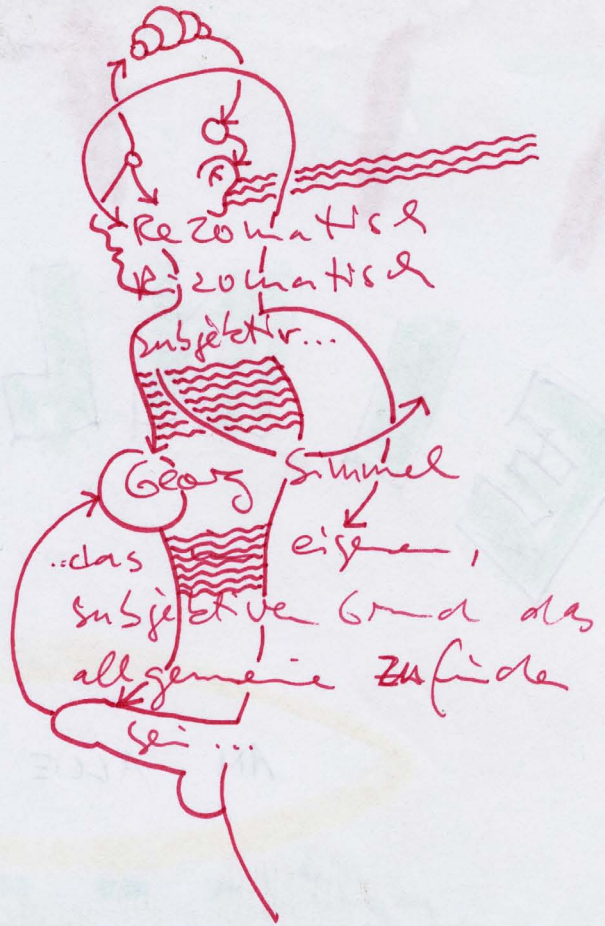 Rezomatisch
Rizomatisch
subjektiv...
Georg Simmel
...das eigenen,
subjektiven Grund das
allgemeine zu finden
sei...